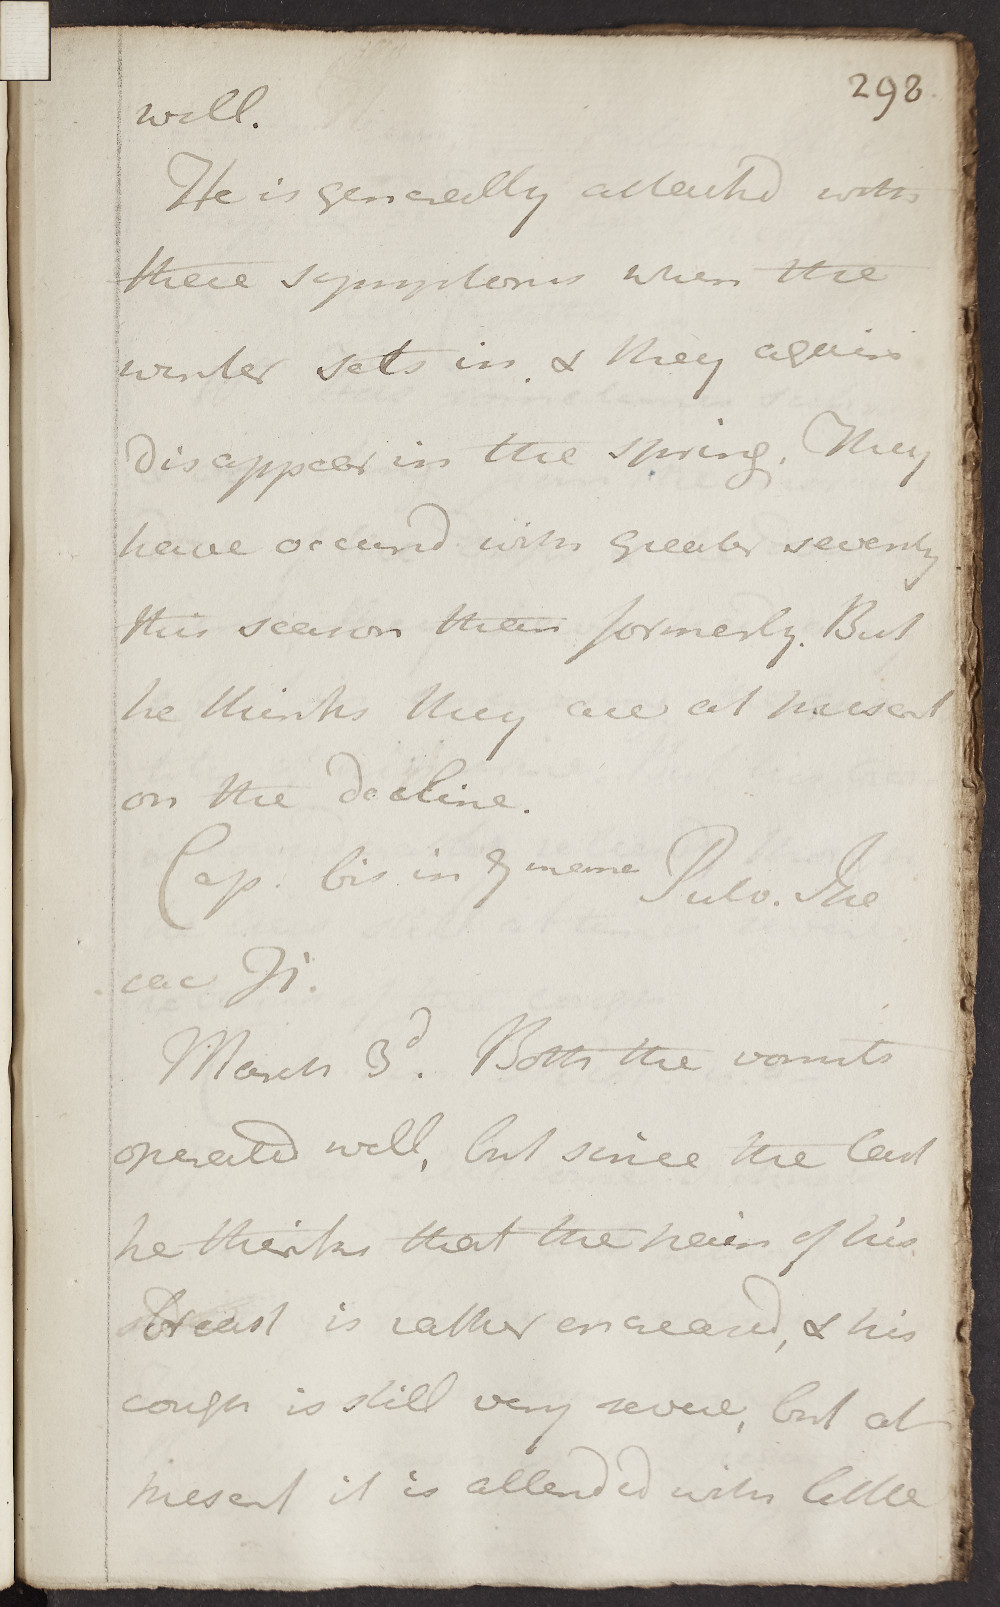 298.
well.
He is generally attacked with
these symptoms when the
winter sets in, & they again
disappear in the spring. They
have occured with greater severity
this season than formerly. But
he thinks they are at present
on the decline.
Cap. bis in mane Pulv. Ipe
cac ʒi.
March 3d. Both the vomits
operated well, but since the last
he thinks that the pain of his
breast is rather encreased, & his
cough is still very severe, but at
present it is attended with little